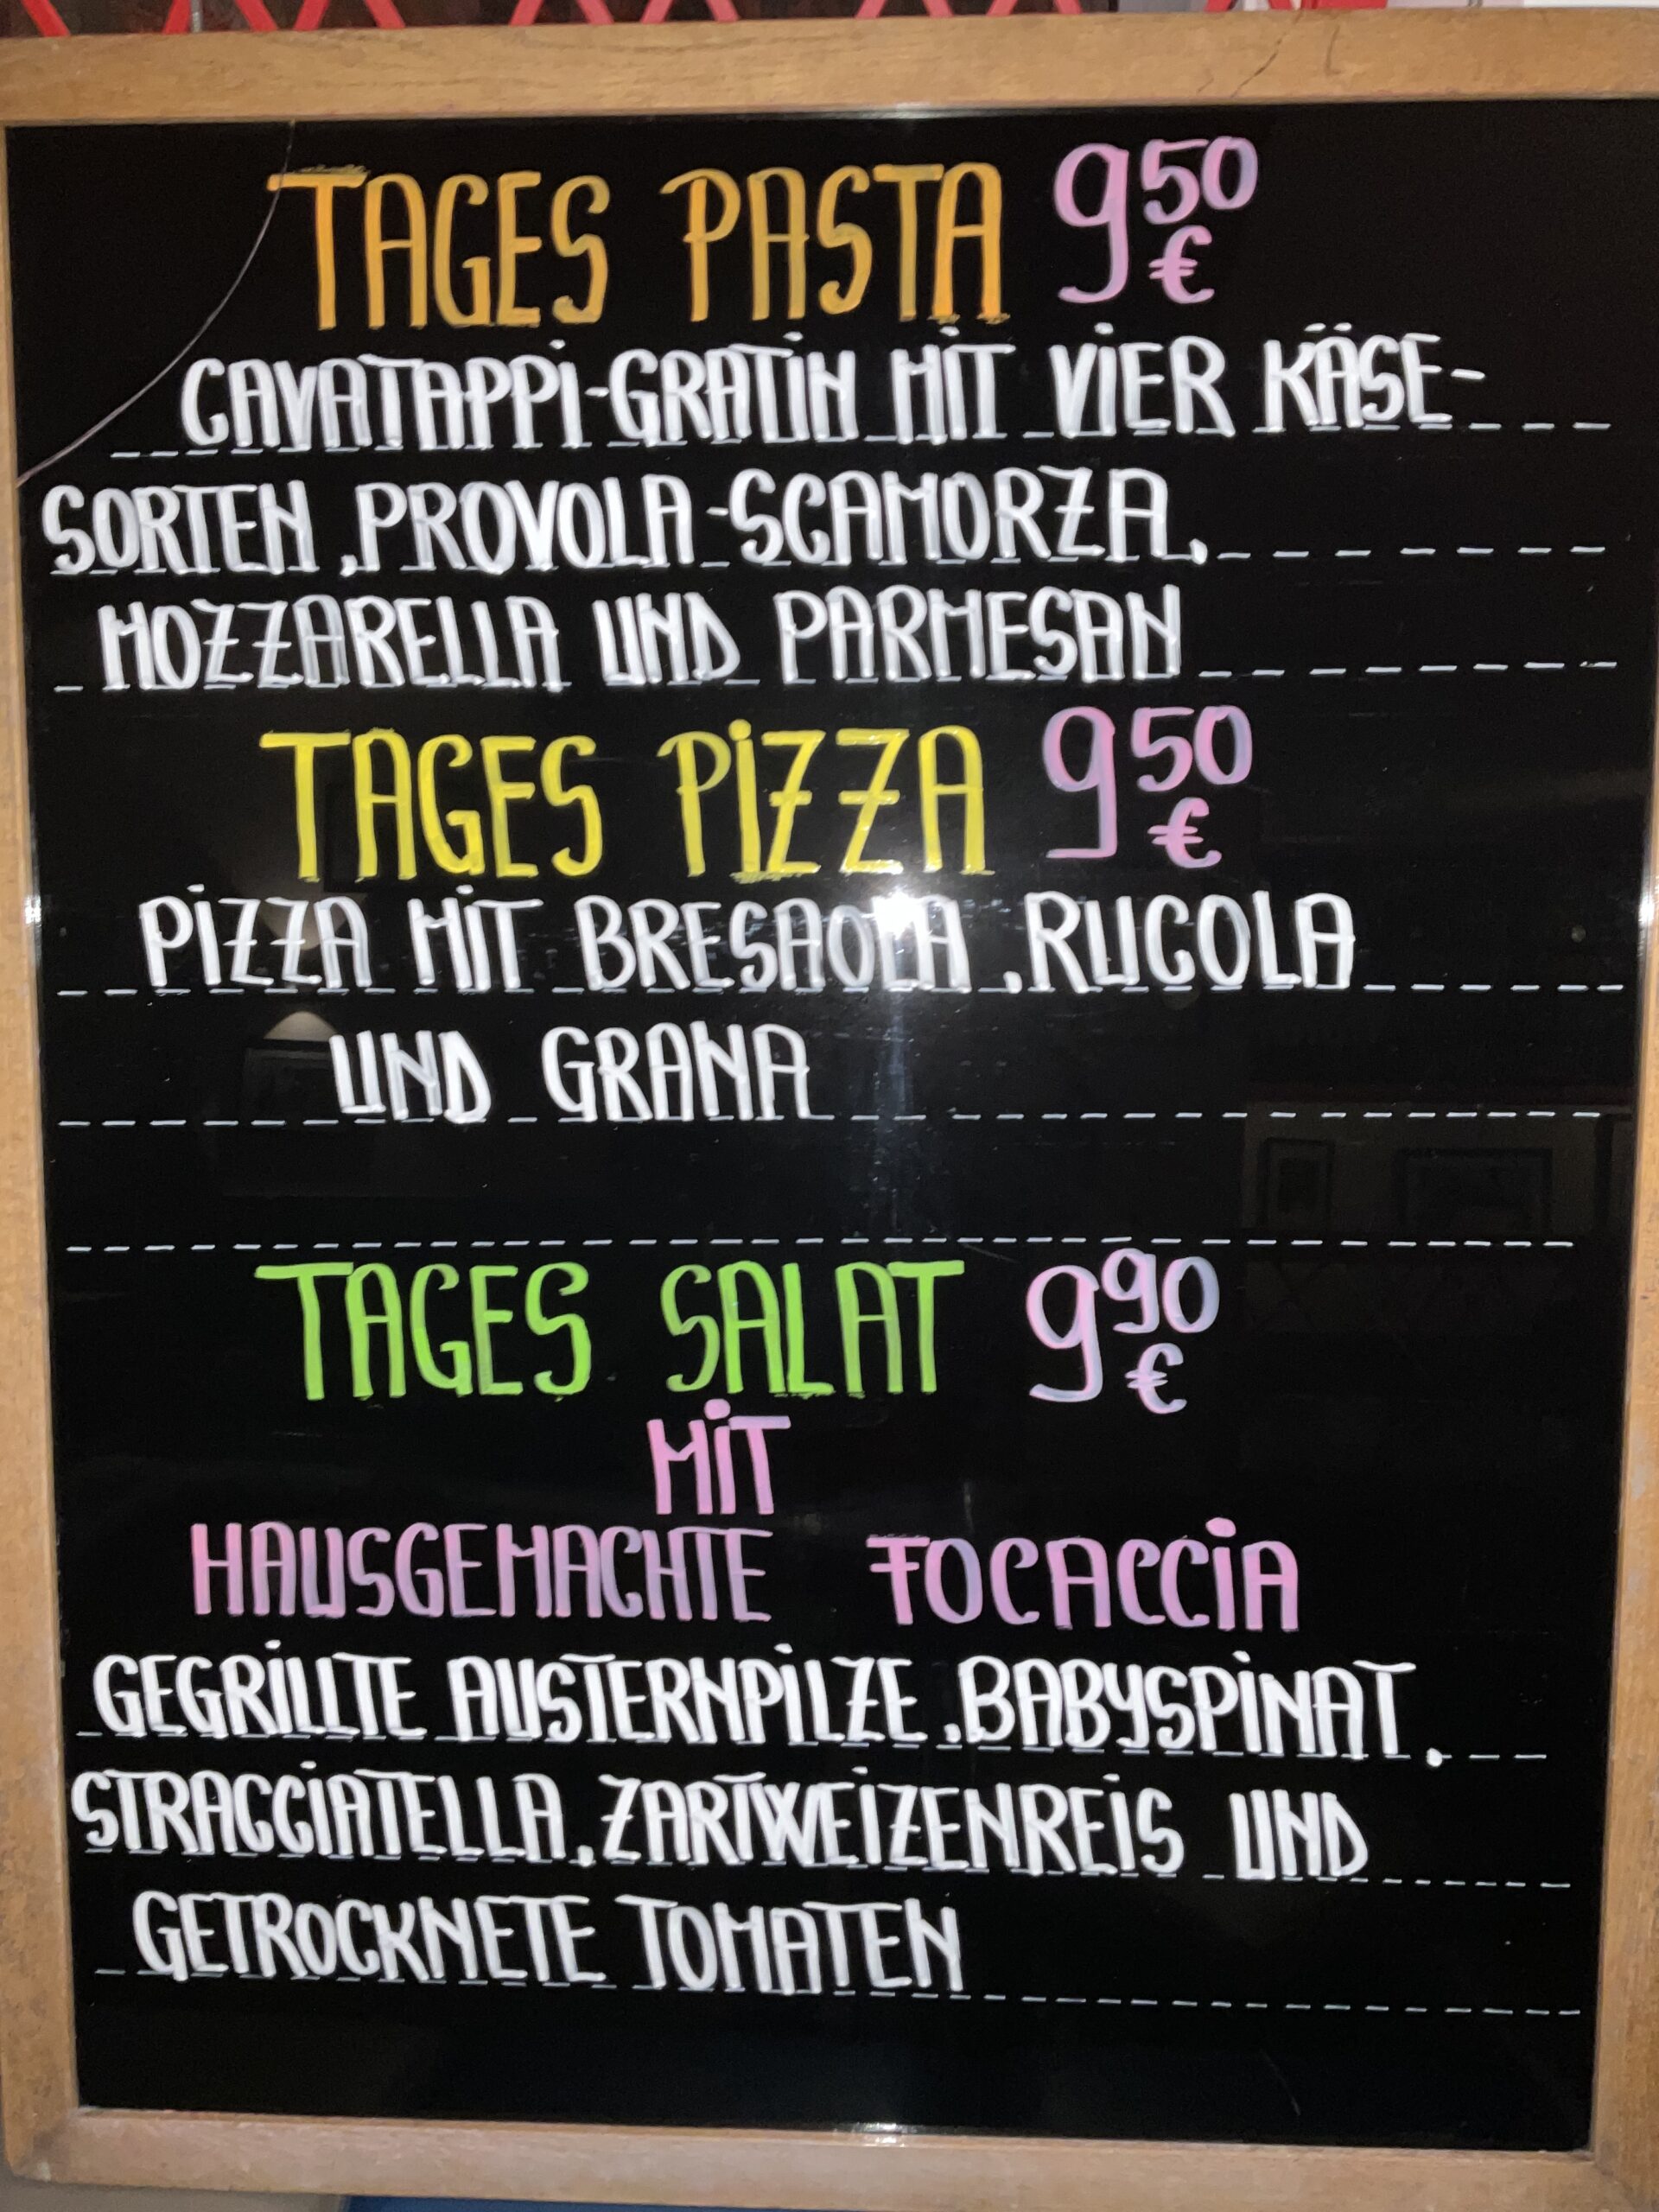 TAGES PASTA 9,50 €
CAVATAPPI-GRATIN MIT VIER KÄSE-
SORTEN, PROVOLA-SCAMORZA,
MOZZARELLA UND PARMESAN
TAGES PIZZA 9,50 €
PIZZA MIT BRESAOLA, RUCOLA
UND GRANA
TAGES SALAT 9,90 €
MIT
HAUSGEMACHTE FOCACCIA
GEGRILLTE AUSTERNPILZE, BABYSPINAT,
STRACCIATELLA, ZARTWEIZENREIS UND
GETROCKNETE TOMATEN